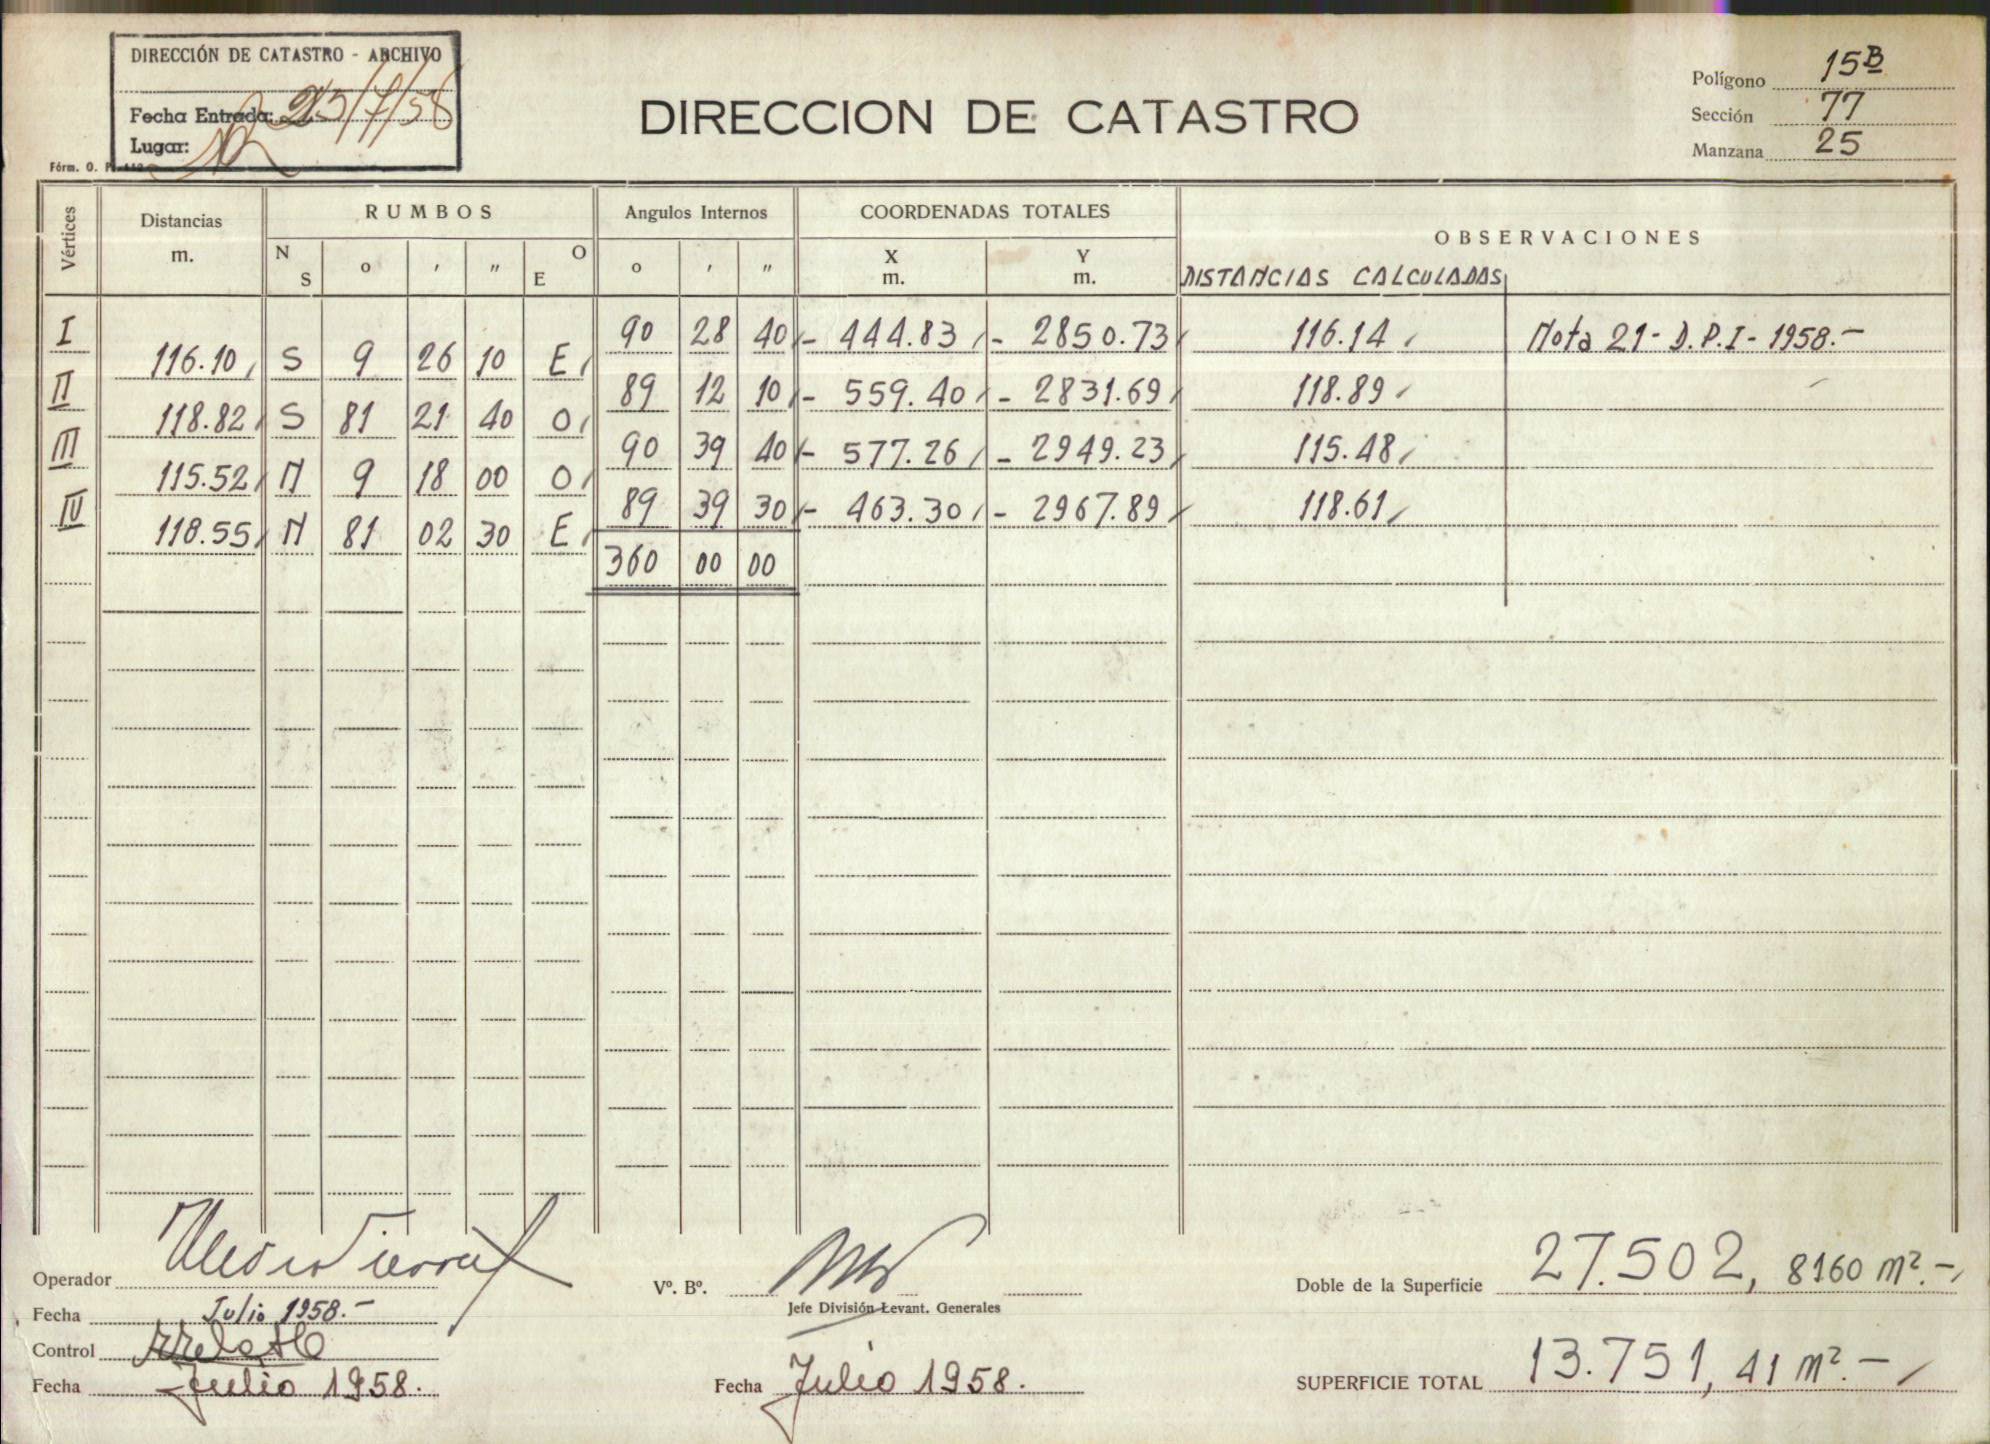 DIRECCIÓN DE CATASTRO - ARCHIVO
Fecha Entrada: 25/7/58
Lugar:
Fórm. O. P.
DIRECCION DE CATASTRO
Polígono 15B
Sección 77
Manzana 25
Vértices Distancias m. RUMBOS Angulos Internos COORDENADAS TOTALES OBSERVACIONES
N S o ' " O E o ' " X m. Y m. DISTANCIAS CALCULADAS
I 90 28 40 - 444.83 - 2850.73 116.14 Nota 21 - D.P.I - 1958.-
116.10 S 9 26 10 E
II 89 12 10 - 559.40 - 2831.69 118.89
118.82 S 81 21 40 O
III 90 39 40 - 577.26 - 2949.23 115.48
115.52 N 9 18 00 O
IV 89 39 30 - 463.30 - 2967.89 118.61
118.55 N 81 02 30 E
360 00 00
Operador
Fecha Julio 1958.-
Control
Fecha Julio 1958.
Vº. Bº.
Jefe División Levant. Generales
Fecha Julio 1958.
Doble de la Superficie 27.502, 8160 m².-
SUPERFICIE TOTAL 13.751, 41 m².-